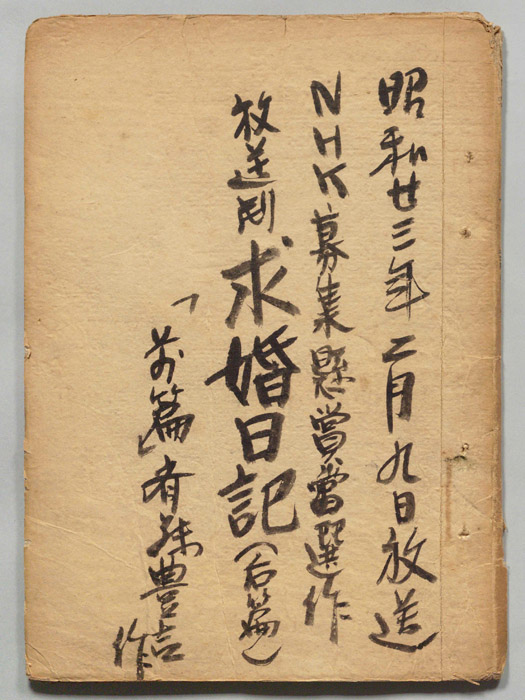 昭和廿三年二月九日放送
NHK募集懸賞當選作
放送劇 求婚日記(后篇)
「前篇」 豊吉作